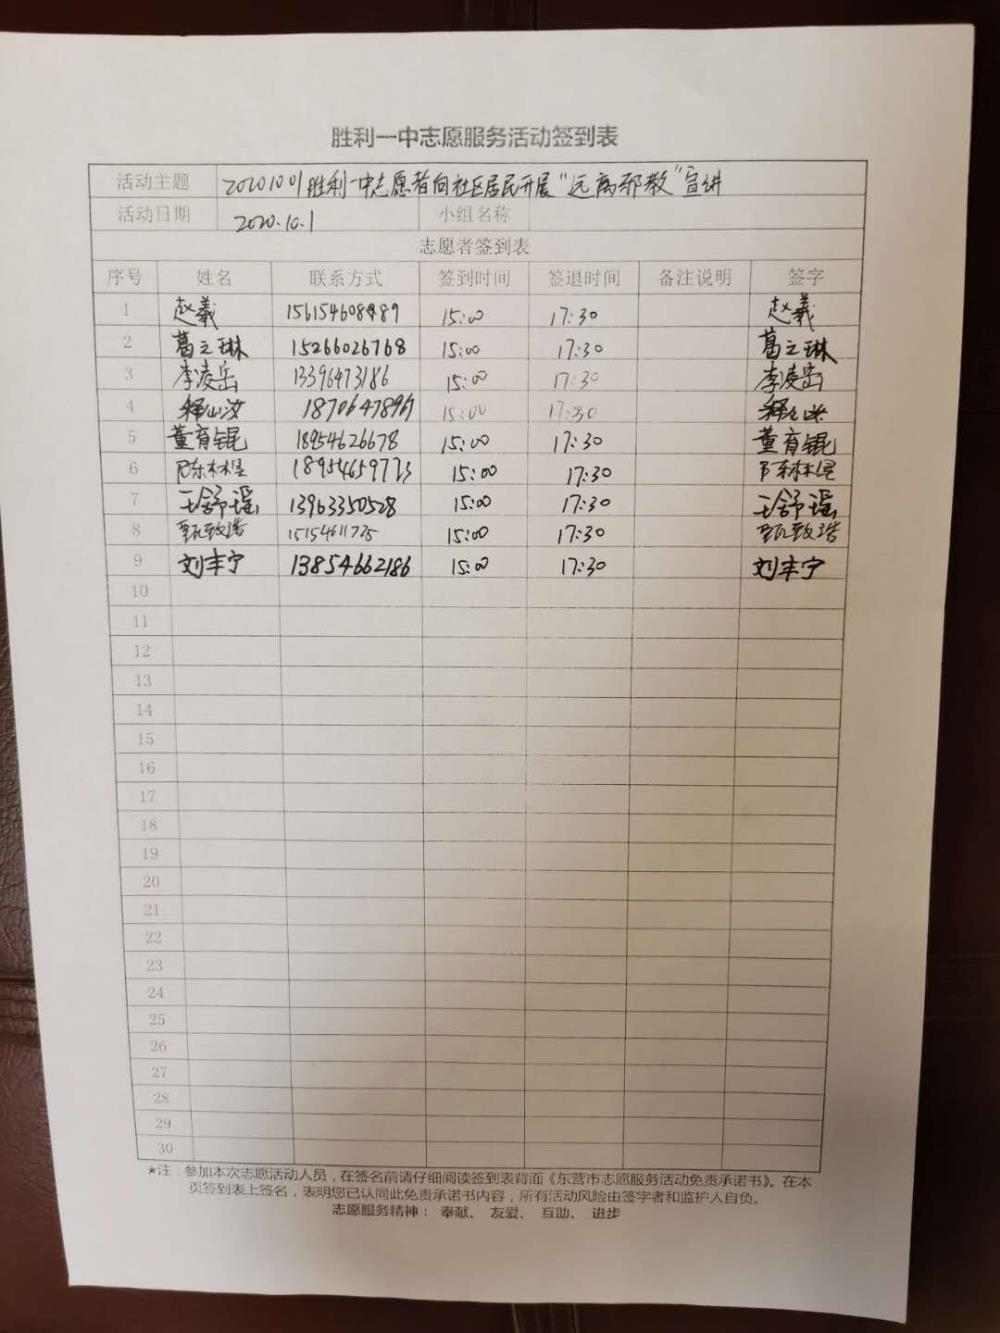 胜利一中志愿服务活动签到表
活动主题 20201001胜利一中志愿者向社区居民开展“远离邪教”宣讲
活动日期 2020.10.1 小组名称
志愿者签到表
序号 姓名 联系方式 签到时间 签退时间 备注说明 签字
1 赵羲 15:00 17:30 赵羲
2 葛之琳 15266026768 15:00 17:30 葛之琳
3 李凌岳 13396473186 15:00 17:30 李凌岳
4 15:00 17:30
5 董育锟 18954626678 15:00 17:30 董育锟
6 陈林煜 18954659773 15:00 17:30 陈林煜
7 王舒瑶 13963350528 15:00 17:30 王舒瑶
8 甄致浩 15:00 17:30 甄致浩
9 刘丰宁 13854662186 15:00 17:30 刘丰宁
10
11
12
13
14
15
16
17
18
19
20
21
22
23
24
25
26
27
28
29
30
★注：参加本次志愿活动人员，在签名前请仔细阅读签到表背面《东营市志愿服务活动免责承诺书》。在本
页签到表上签名，表明您已认同此免责承诺书内容，所有活动风险由签字者和监护人自负。
志愿服务精神： 奉献、 友爱、 互助、 进步